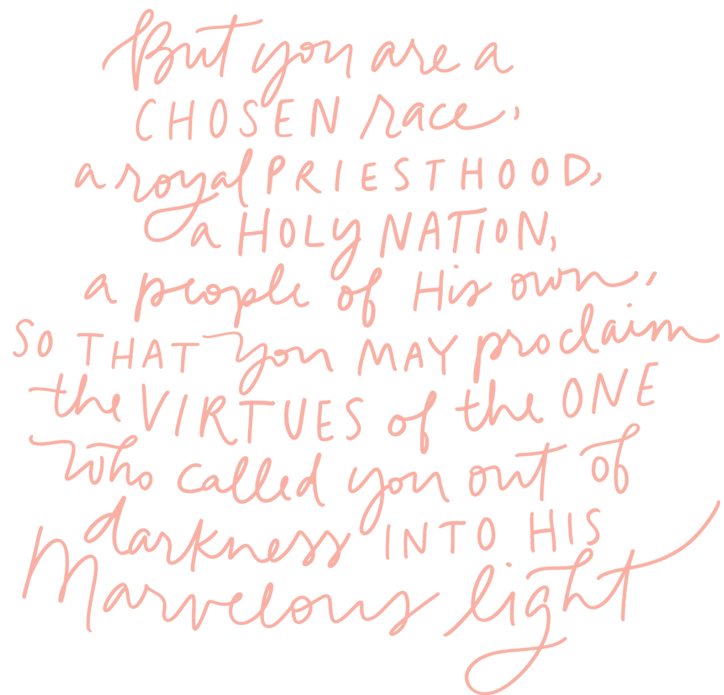 But you are a
CHOSEN race,
a royal PRIESTHOOD,
a HOLY NATION,
a people of His own,
SO THAT you MAY proclaim
the VIRTUES of the ONE
who called you out of
darkness INTO HIS
Marvelous light